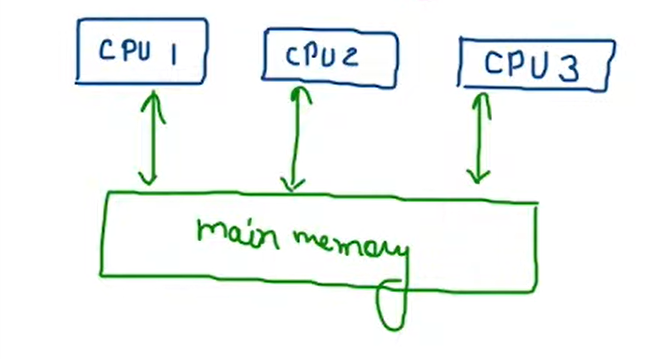 CPU 1
CPU2
CPU 3
main memory